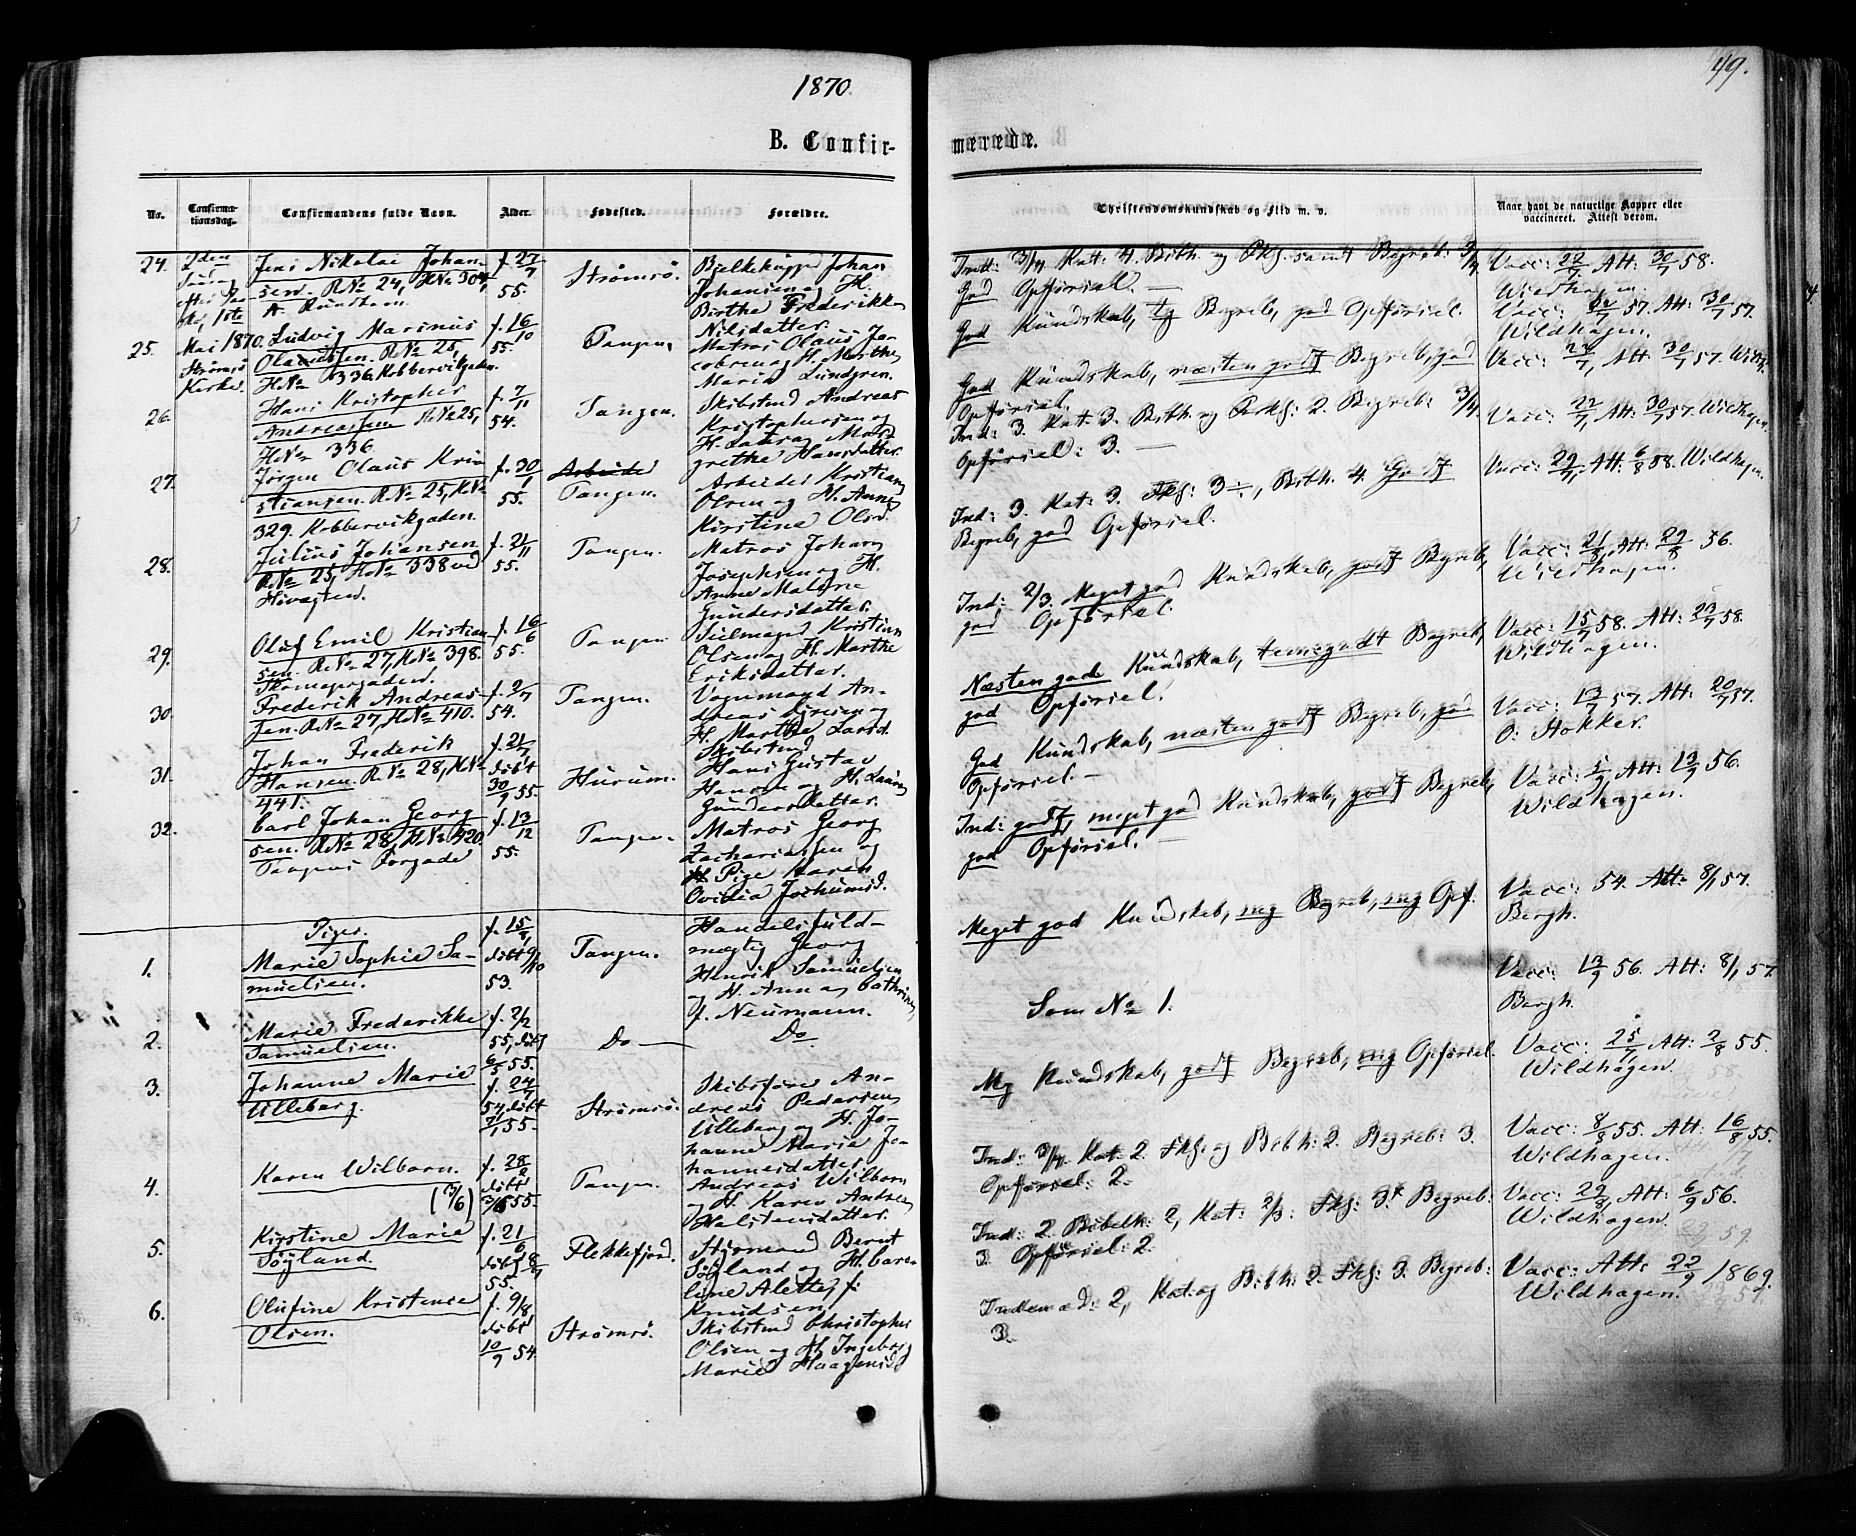 1870.
49.
B. Confir-
merede.
No.
Confirma-
tionsdag.
Confirmandens fulde Navn.
Alder.
Fødested.
Forældre.
Christendomskundskab og Flid m. v.
Naar havt de naturlige Kopper eller
vaccineret. Attest derom.
24.
2den
Sønd.
efter Paa-
ske, 1ste
Mai 1870.
Strømsø
Kirke.
Jens Nikolai Johan-
sen. R.No 24, H.No 304,
f. 27/7
55.
Strømsø.
Johan
Johansen og H.
Birthe Frederikke
Nilsdatter.
Ind: 3/4 Kat: 4. Bibh. og Fkl. samt Begreb: 3/4
God Opførsel. —
Vacc: 22/7 Att: 30/7 58.
Wildhagen.
25.
Ludvig Marinus
Olaussen. R.No 25,
H.No 336 Kobbervikgaden.
f. 16/10
55.
Tangen.
Matros Olaus Ja-
cobsen og H. Marthe
Maria Lundgren.
God Kundskab, tg Begreb, god Opførsel.
Vacc: 22/7 57. Att: 30/7 57.
Wildhagen.
26.
Hans Kristopher
Andreassen R.No 25,
H.No 336
f. 7/11
54.
Tangen.
Skibstmd Andreas
Kristophersen og
H. Laura Mar-
grethe Hansdatter.
God Kundskab, næsten godt Begreb, god
Opførsel.
Vacc: 22/7, Att: 30/7 57. Wildh.
27.
Jørgen Olaus Kri-
stiansen. R.No 25, H.No
329. Kobbervikgaden.
f. 30/1
55.
Arbeide
Tangen.
Arbeider Kristian
Olsen og H. Anne
Kirstine Olsd.
Ind: 3. Kat: 3. Bibh. og Fkl: 2. Begreb: 3/4.
Opførsel: 3. —
Vacc: 22/7, Att: 30/7 57. Wildhagen.
28.
Julius Johansen
R.No 25, H.No 338 ved
f. 21/11
55.
Tangen.
Matros Johan
Josephsen og H.
Anne Malene
Gundersdatter.
Ind: 3. Kat: 3. Fkl: 3÷, Bibh. 4. Godt
Begreb, god Opførsel.
Vacc: 29/7, Att: 6/8 58. Wildhagen.
29.
Oluf Emil Kristian-
sen. R.No 27, H.No 398.
f. 16/6
55.
Tangen.
Seilmager Kristian
Olsen og H. Marthe
Eriksdatter.
Ind: 2/3. Meget god Kundskab, godt Begreb,
god Opførsel.
Vacc: 21/8, Att: 29/8 56.
Wildhagen.
30.
Frederik Andreas-
sen. R.No 27, H.No 410.
f. 2/7
54.
Tangen.
Vognmand An-
dreas Iversen og
H. Marthe Larsd.
Næsten gode Kundskab, temgodt Begreb,
god Opførsel.
Vacc: 15/7 58. Att: 23/7 58.
Wildhagen.
31.
Johan Frederik
Hansen. R.No 28, H.No
441.
f. 21/7
døbt
30/9 55.
Hurum.
Skibstmd
Hans Gustav
Hansen og H. Laura
Gundersdatter.
God Kundskab, næsten godt Begreb, god
Opførsel. —
Vacc: 13/7 57. Att: 20/7 57.
O: Stokker.
32.
Carl Johan Georg-
sen. R.No 28, H.No 420.
Tangens Torgade
f. 13/12
55.
Tangen.
Matros Georg
Zachariassen og
Pige Karen
Ovidia Jochumsd.
Ind: godt, meget god Kundskab, godt Begreb,
god Opførsel. —
Vacc: 5/9 Att: 13/9 56.
Wildhagen.
Piger.
1.
Marie Sophie Sa-
muelsen.
f. 15/7
døbt 9/10
53.
Tangen.
Handelsfuld-
mægtig Georg
Henrik Samuelsen
og H. Anna Cathrine
f. Neumann.
Meget god Kundskab, mg Begreb, mg Opf.
Vacc: 54. Att: 8/1 57.
Bergh.
2.
Marie Frederikke
Samuelsen.
f. 2/2
55, døbt
6/5 55.
Do —
Do
Som No 1.
Vacc: 13/9 56. Att: 8/1 57.
Bergh.
3.
Johanne Marie
Ulleberg.
f. 24/7
54 døbt
7/1 55.
Strømsø.
Skibsfører An-
dreas Pedersen
Ulleberg og H. Jo-
hanne Marie Jo-
hannesdatter.
Mg Kundskab, godt Begreb, mg Opførsel.
Vacc: 25/7 Att: 2/8 55.
Wildhagen.
4.
Karen Wilborn.
(3/6)
f. 28/2
døbt
3/6 55.
Tangen.
Andreas Wilborn
og H. Karen Andrea
Halstensdatter.
Ind: 3/4. Kat: 2. Fkl: og Bibh: 2. Begreb: 3.
Opførsel: 2.
Vacc: 8/8 55. Att: 16/8 55.
Wildhagen.
5.
Kirstine Marie
Søyland.
f. 21/6
døbt 8/7
55.
Flekkefjord.
Styrmand Bernt
Søyland og H. Caro-
line Alette, f.
Knudsen
Ind: 2. Bibelh: 2, Kat: 2/3: Fkl: 3. Begreb:
3 Opførsel: 2.
Vacc: 29/8, Att: 6/9 56.
Wildhagen.
6.
Olufine Kristense
Olsen.
f. 9/8
døbt
10/9 54.
Strømsø.
Skibstmd Christopher
Olsen og H. Ingeborg
Marie Haagensd.
Indenad: 2, Kat: og Bibh: 2. Fkl: 3. Begreb:
3.
Vacc: Att: 22/9 1869.
Wildhagen.